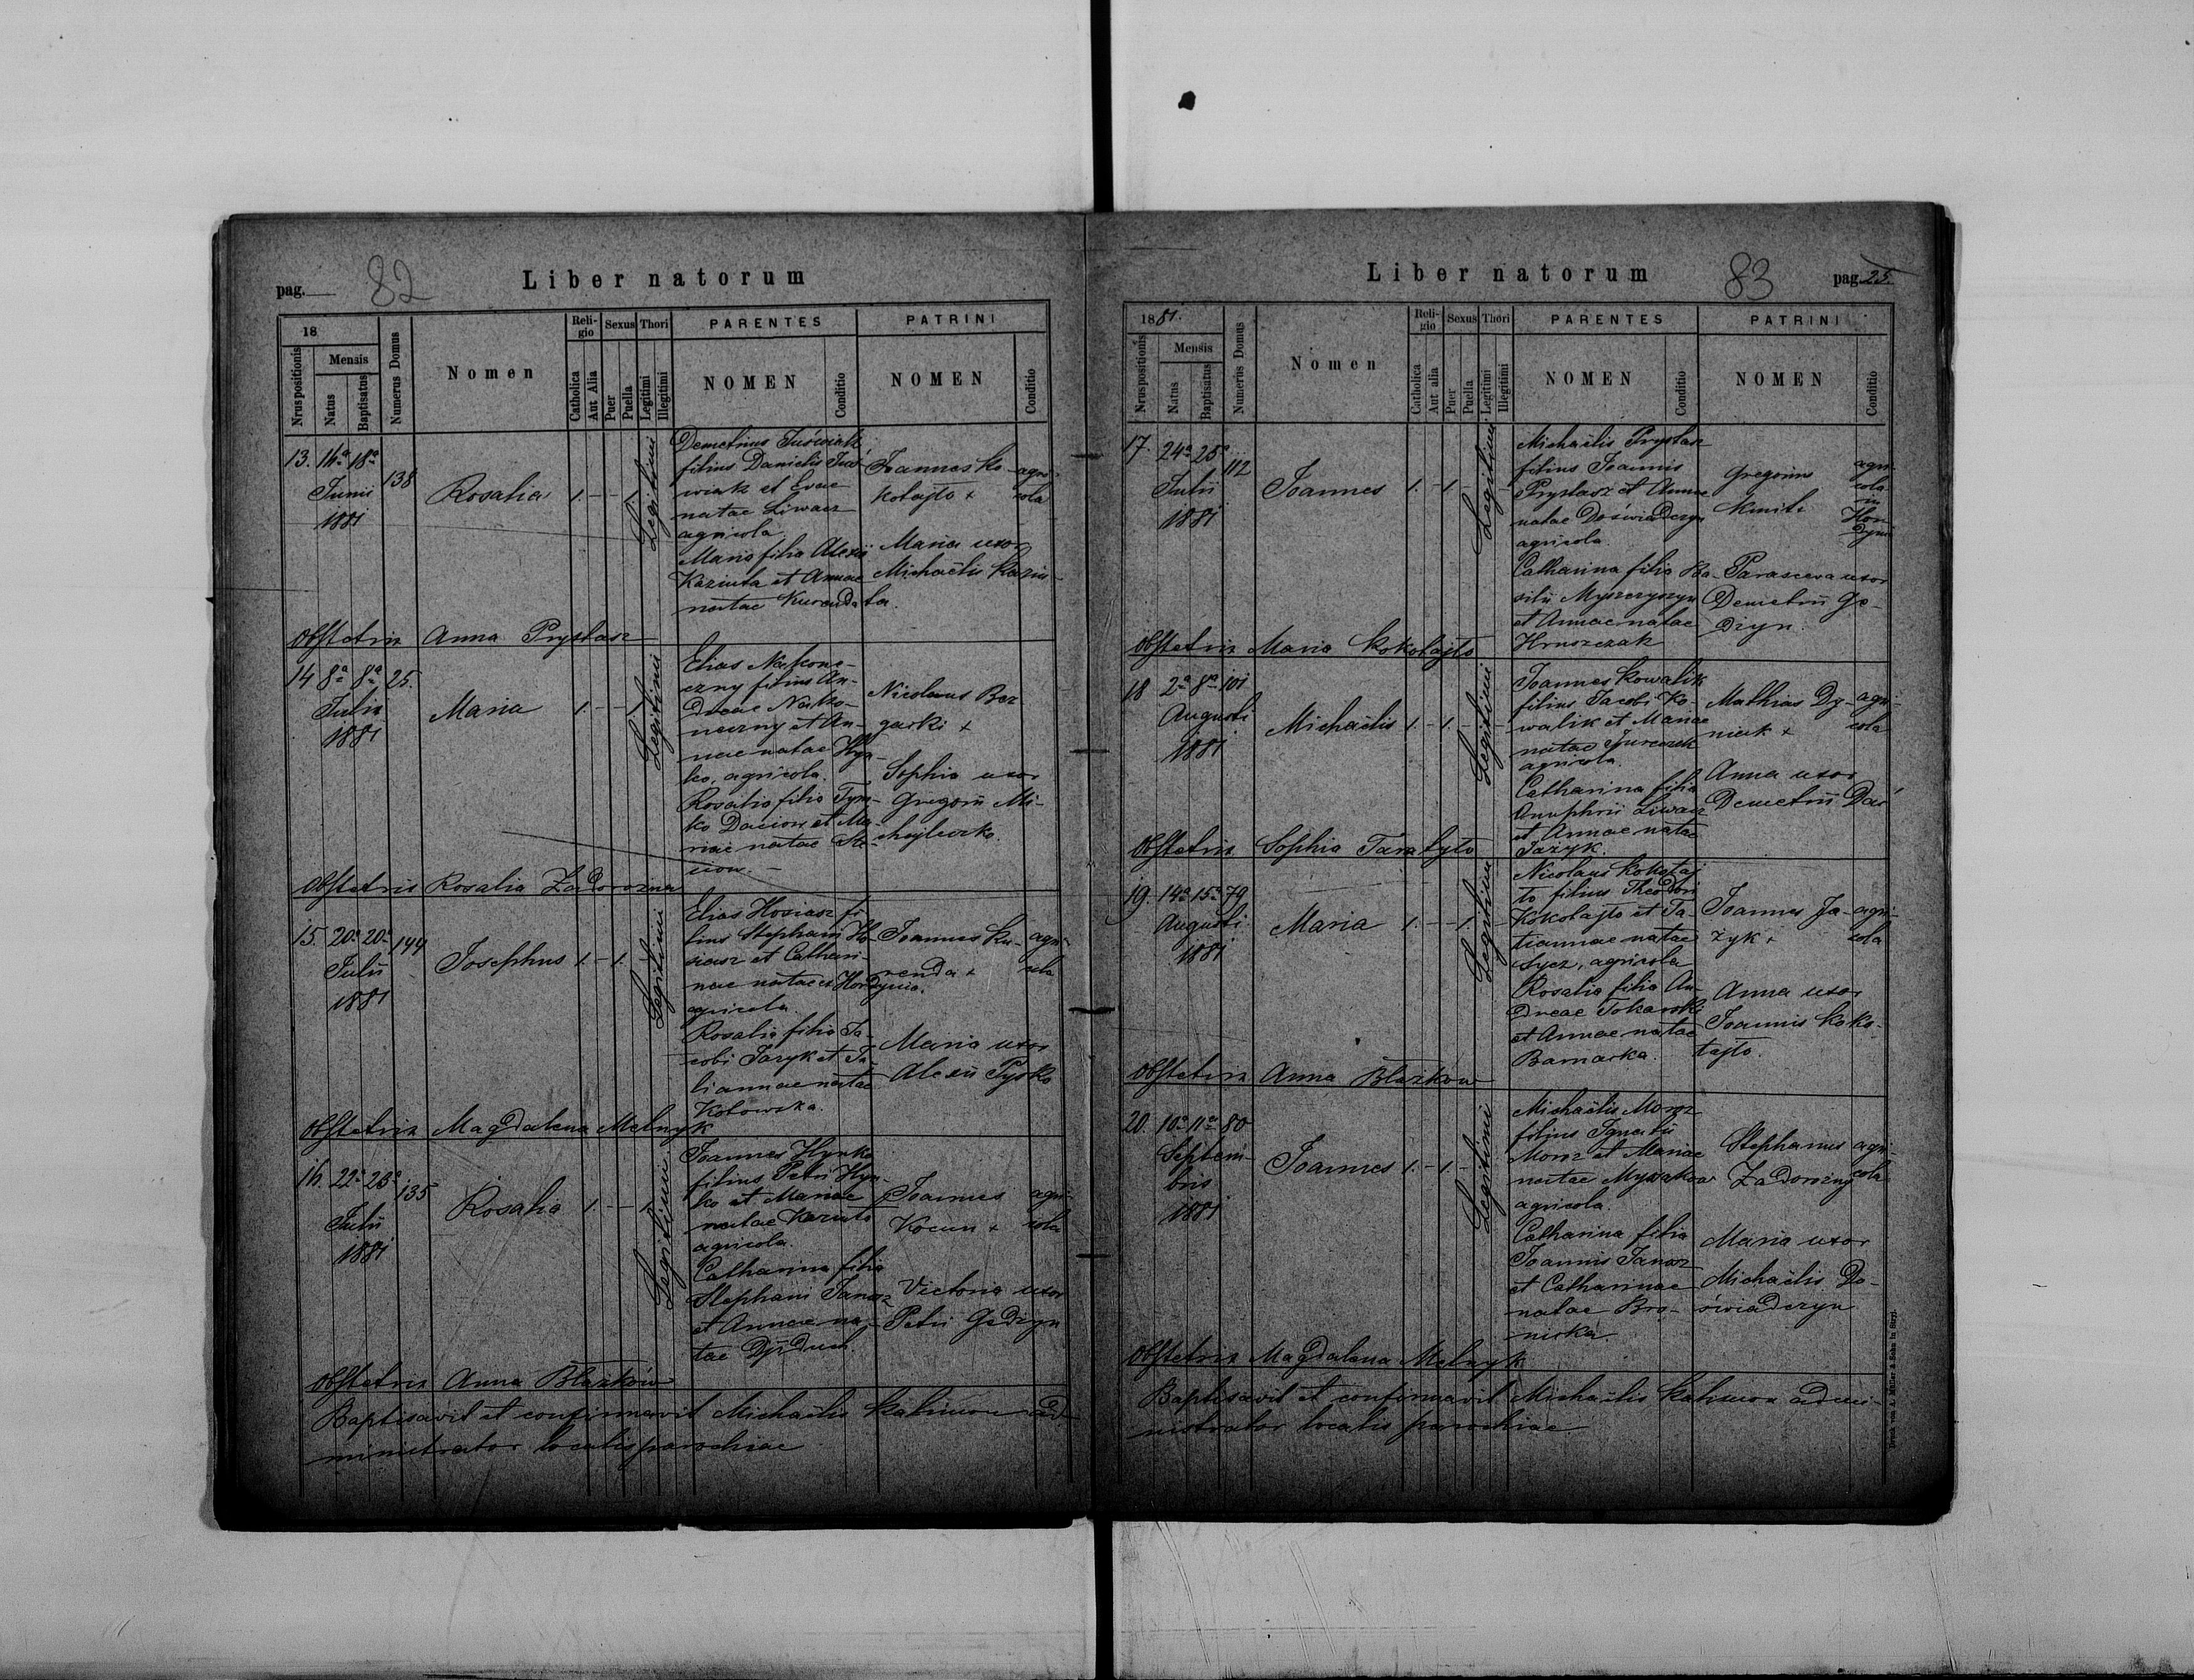 pag. 82
Liber natorum
18
Nrus positionis
Mensis
Natus
Baptisatus
Numerus Domus
Nomen
Religio
Catholica
Aut Alia
Sexus
Puer
Puella
Thori
Legitimi
Illegitimi
PARENTES
NOMEN
Conditio
PATRINI
NOMEN
Conditio
13. 14a 18a 138
Junii
1881
Rosalia
1. - - 1.
Legitimi
Demetrius
filius Danielis
wiak et Evae
natae Liwacz
agricola
Maria filia Alexii
Kaziuta et Annae
natae Kurenda
Joannes Ko-
kotajto +
agri-
cola
Maria uxor
Michaëlis Kaziu-
ta.
Obstetrix Anna Prystasz
14 8a 8a 25.
Julii
1881
Maria
1. - - 1.
Legitimi
Elias Nakone-
czny filius An-
dreae Nako-
neczny et An-
nae natae Hyn-
ko, agricola.
Rosalia filia Tym-
ko Daciow et Ma-
riae natae Ste-
ciow. -
Nicolaus Bez
garki +
Sophia uxor
Gregorii Mi-
chajleczko.
Obstetrix Rosalia Zadorozna
15. 20a 20a 144
Julii
1881
Josephus
1. - 1.
Legitimi
Elias Hosiasz fi-
lius Stephani Ho-
siasz et Cathari-
nae natae Hordynia.
agricola.
Rosalia filia Ja-
cobi Jazyk et Ju-
liannae natae
Kotowska.
Joannes Ku-
renda +
agri-
cola
Maria uxor
Alexii Pysko
Obstetrix Magdalena Melnyk
16. 22a 23a 135
Julii
1881
Rosalia
1. - - 1.
Legitimi
Joannes Hynko
filius Petri Hyn-
ko et Mariae
natae Kaziuta
agricola.
Catharina filia
Stephani Janosz
et Annae na-
tae Dziduch.
Joannes
Kocun +
agri-
cola
Victoria uxor
Petri Gedzyn
Obstetrix Anna Blazkow
Baptisavit et confirmavit Michaëlis Kalimon ad-
ministrator localis parochiae
Liber natorum
83
pag. 25.
1881.
Nrus positionis
Mensis
Natus
Baptisatus
Numerus Domus
Nomen
Religio
Catholica
Aut alia
Sexus
Puer
Puella
Thori
Legitimi
Illegitimi
PARENTES
NOMEN
Conditio
PATRINI
NOMEN
Conditio
17. 24a 25a 112
Julii
1881
Joannes
1. - 1.
Legitimi
Michaëlis Prystasz
filius Joannis
Prystasz et Annae
natae Doswiadczyn
agricola.
Catharina filia Ba-
silii Myszczyszyn
et Annae natae
Hruszczak
Gregorius
Kmit
agri-
cola
in
Hor-
dynia
Parasceva uxor
Demetrii Ge-
dzyn.
Obstetrix Maria Kokotajto
18 2a 8a 101
Augusti
1881
Michaëlis
1. - 1.
Legitimi
Joannes Kowalik
filius Jacobi Ko-
walik et Mariae
natae Jurczak
agricola.
Catharina filia
Onuphrii Liwacz
et Annae natae
Jazyk.
Mathias Dy-
niak +
agri-
cola
Anna uxor
Demetrii Dac
Obstetrix Sophia Taratyto
19. 14a 15a 79
Augusti
1881
Maria
1. - - 1.
Legitimi
Nicolaus Kokotaj
to filius Theodori
Kokotajto et Ta-
tiannae natae
Sycz, agricola
Rosalia filia An-
dreae Tokarski
et Annae natae
Bamarka.
Joannes Ja-
zyk +
agri-
cola
Anna uxor
Joannis Koko-
tajto.
Obstetrix Anna Blazkow
20. 10a 11a 80
Septem-
bris
1881
Joannes
1. - 1.
Legitimi
Michaëlis Moroz
filius Ignatii
Moroz et Mariae
natae
agricola.
Catharina filia
Joannis Janosz
et Catharinae
natae Bro-
niska.
Stephanus
Zadorozny
agri-
cola
Maria uxor
Michaëlis Do-
świadczyn
Obstetrix Magdalena Melnyk
Baptisavit et confirmavit Michaëlis Kalimon admi-
nistrator localis parochiae
Druck von A. Müller & Sohn in Stryj.